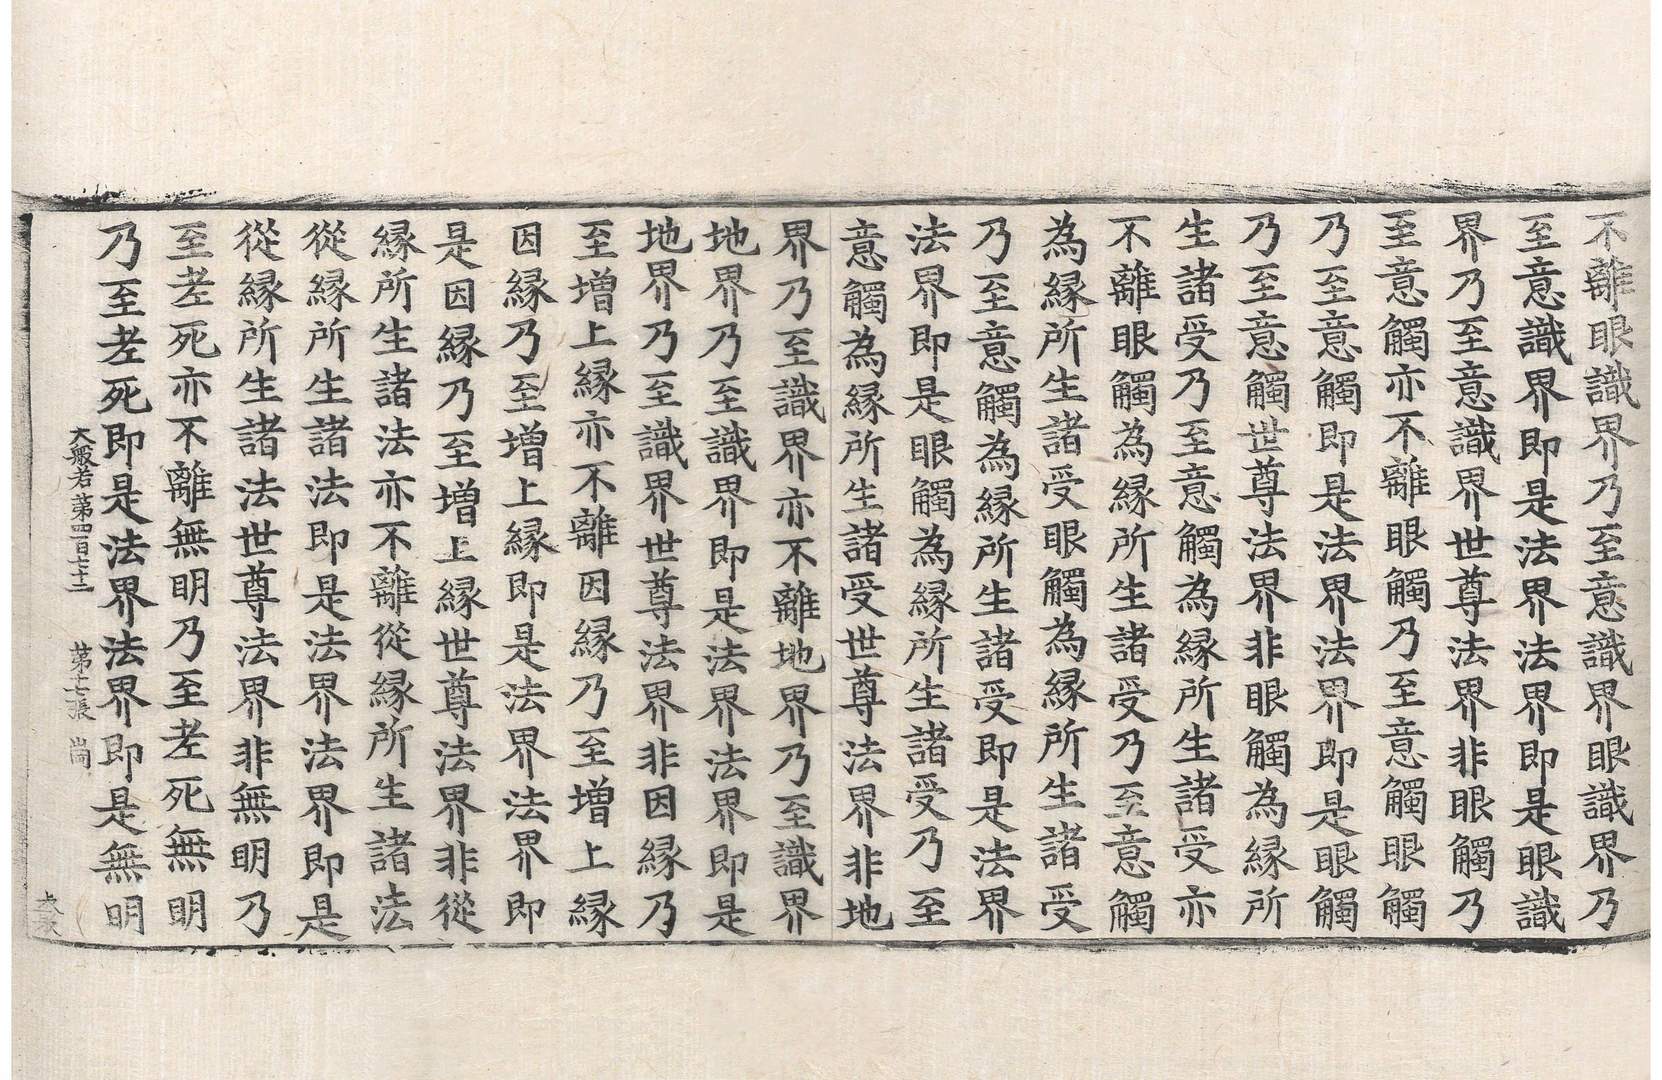 不離眼識界乃至意識界眼識界乃
至意識界即是法界法界即是眼識
界乃至意識界世尊法界非眼觸乃
至意觸亦不離眼觸乃至意觸眼觸
乃至意觸即是法界法界即是眼觸
乃至意觸世尊法界非眼觸為縁所
生諸受乃至意觸為縁所生諸受亦
不離眼觸為縁所生諸受乃至意觸
為縁所生諸受眼觸為縁所生諸受
乃至意觸為縁所生諸受即是法界
法界即是眼觸為縁所生諸受乃至
意觸為縁所生諸受世尊法界非地
界乃至識界亦不離地界乃至識界
地界乃至識界即是法界法界即是
地界乃至識界世尊法界非因縁乃
至增上縁亦不離因縁乃至增上縁
因縁乃至增上縁即是法界法界即
是因縁乃至增上縁世尊法界非從
縁所生諸法亦不離從縁所生諸法
從縁所生諸法即是法界法界即是
從縁所生諸法世尊法界非無明乃
至老死亦不離無明乃至老死無明
乃至老死即是法界法界即是無明
大般若第四百七十二 第十七張 尚